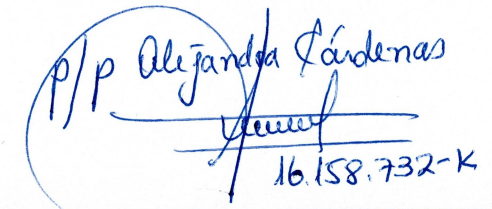 p/p Alejandra Cárdenas
16.158.732-K